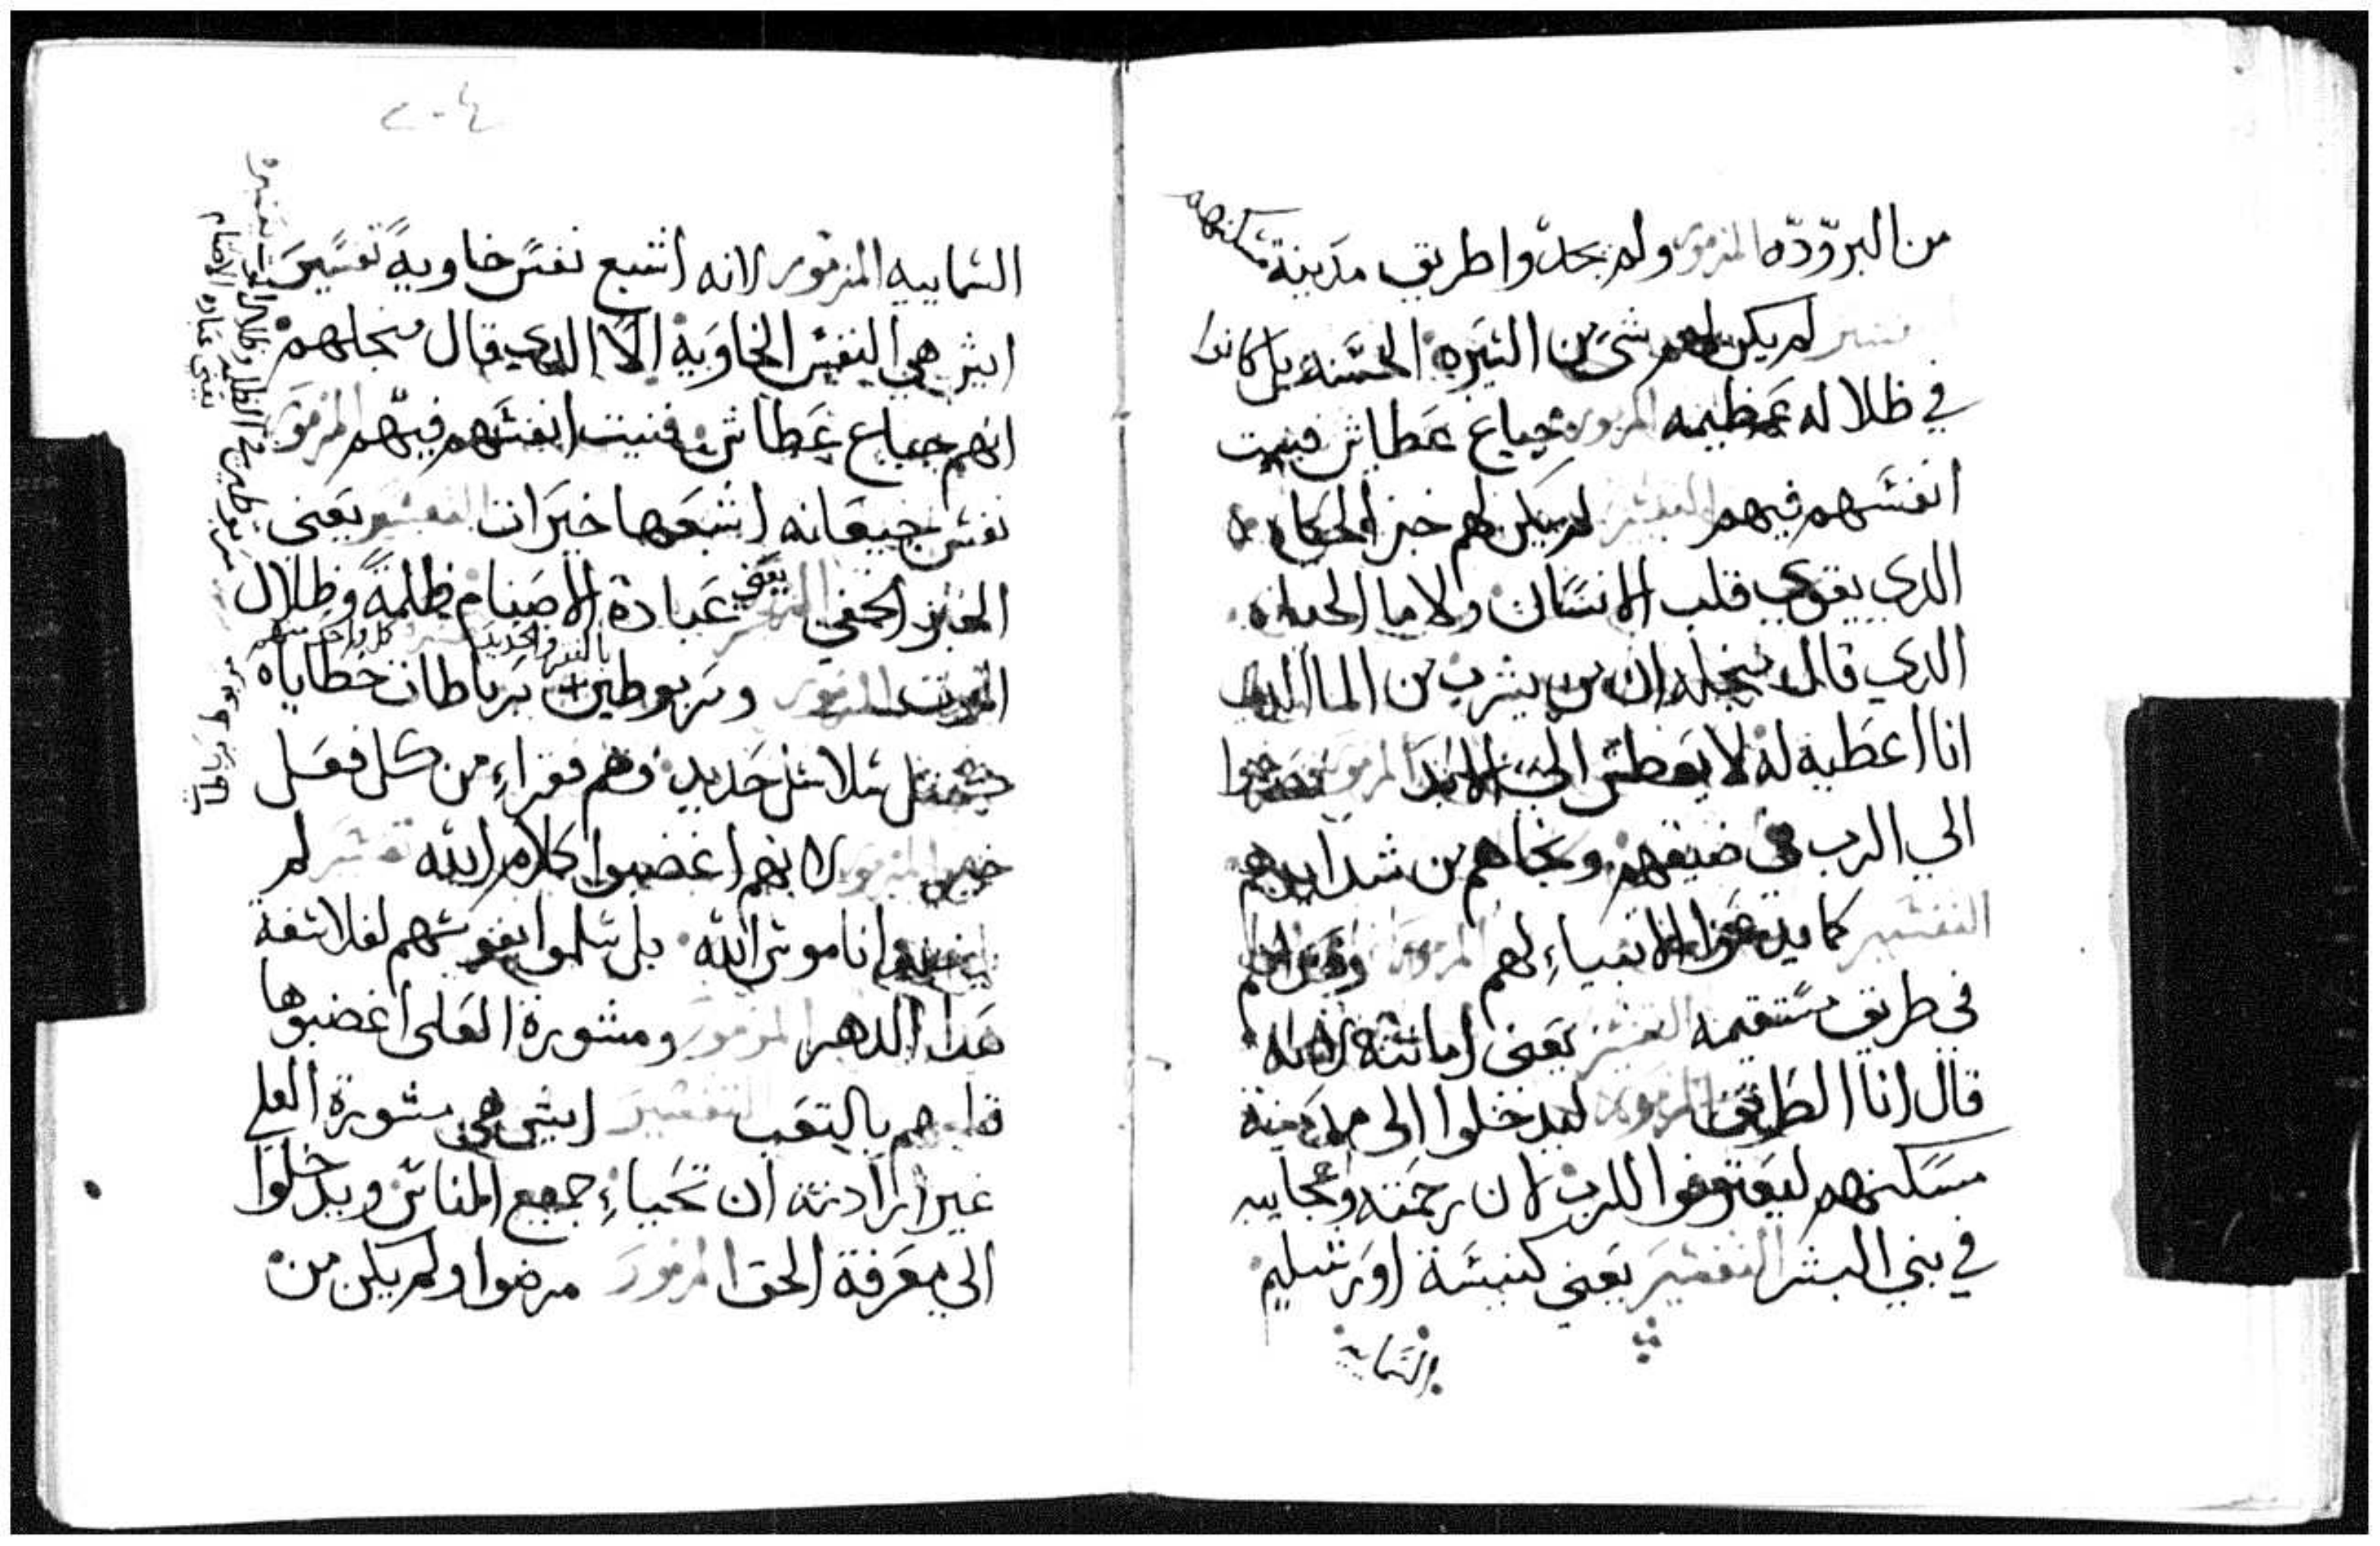 من البروده المزمور ولم يجدوا طريق مدينة مسكنهم
تفسير لم يكن لهم شي من السيره الحسنه بل كانوا
في ظلاله عظيمه المزمور جياع عطاش فنيت
انفسهم فيهم التفسير لم يكن لهم خبز الحياه
الدي يقوي قلب الانسان ولا ما الحياه
الدي قال من يشرب من الما الدي
انا اعطيه له لا يعطش الي الابد المزمور فصرخوا
الي الرب في ضيقهم ونجاهم من شدايدهم
التفسير كما الانبياء لهم المزمور
في طريق مستقيمه التفسير يعني امانته لانه
قال انا الطريق المزمور ليدخلوا الى مدينة
مسكنهم ليعترفوا للرب لان رحمته وعجايبه
في بني البشر التفسير يعني كنيسة اورشليم
السمايية
٢٠٤
السماييه المزمور لانه اشبع نفس خاوية تفسير
ايش هي النفس الخاوية الا الدي قال من اجلهم
انهم جياع عطاش فنيت انفسهم فيهم المزمور
نفس جيعانه اشبعها خيرات التفسير يعني
الخبز الخفي التفسير يعني عبادة الاصنام ظلمة وظلال
بالفقر والحديد تفسير كل واحد منهم
الموت المزمور ومربوطين برباطات خطاياه
مثل سلاسل حديد وهم فقراء من كل فعل
خير المزمور لانهم اغضبوا كلام الله تفسير لم
ناموس الله بل سلموا نفوسهم لفلاسفة
هدا الدهر المزمور ومشورة العلى اغضبوها
قلبهم بالتعب التفسير ايش هي مشورة العلي
غير ارادته ان تحياء جميع الناس ويدخلوا
الى معرفة الحق المزمور مرضوا ولم يكن من
الظلمه وظلال الموت تفسيره
يعني عباده الاصنام